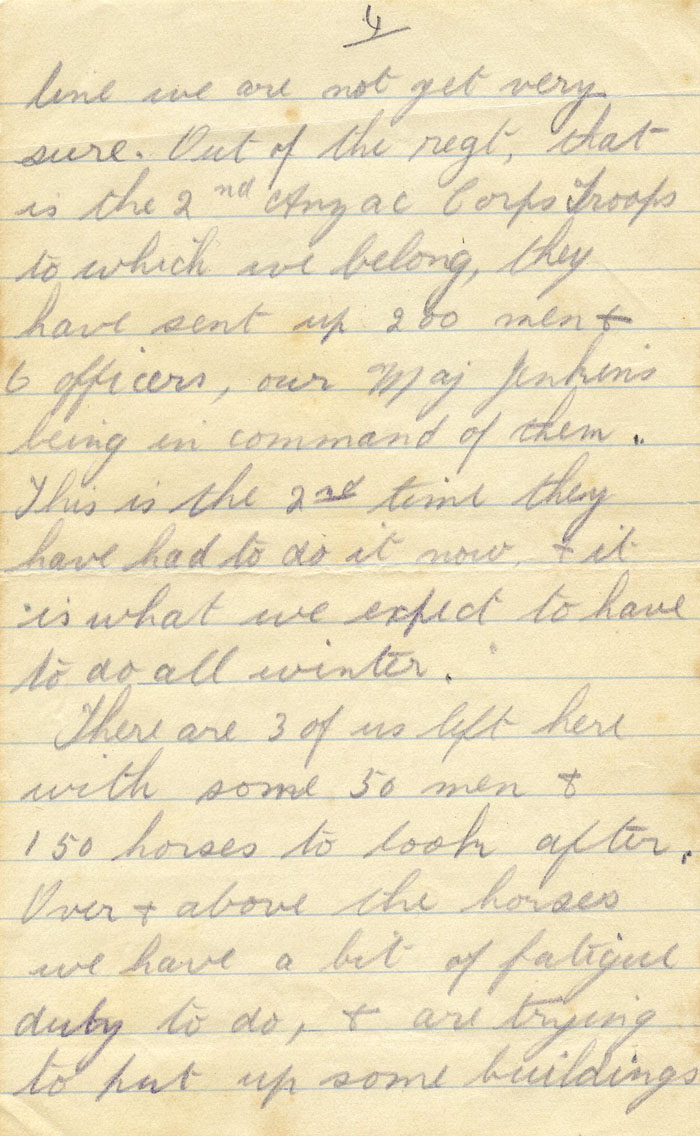 4
line we are not yet very
sure. Out of the regt, that
is the 2nd Anzac Corps Troops
to which we belong, they
have sent up 200 men &
6 officers, our Maj Jenkins
being in command of them.
This is the 2nd time they
have had to do it now, & it
is what we expect to have
to do all winter.
There are 3 of us left here
with some 50 men &
150 horses to look after.
Over & above the horses
we have a bit of fatigue
duty to do, & are trying
to put up some buildings